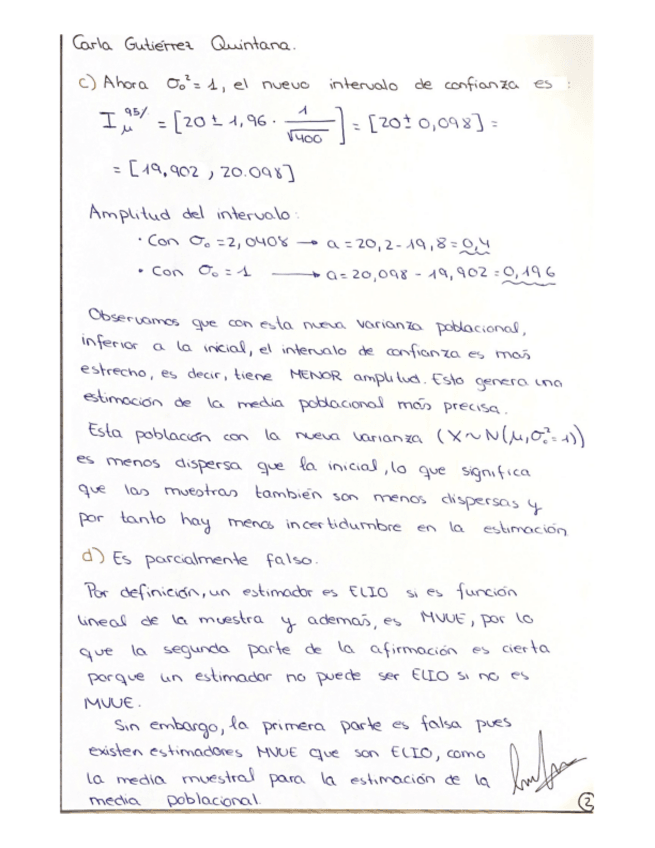 Carla Gutiérrez Quintana.
c) Ahora σ₀² = 1, el nuevo intervalo de confianza es :
I_μ^95% = [20 ± 1,96 · 1/√400] = [20 ± 0,098] =
= [19,902 , 20.098]
Amplitud del intervalo:
· Con σ₀ = 2,0408 → a = 20,2 - 19,8 = 0,4
· Con σ₀ = 1 → a = 20,098 - 19,902 = 0,196
Observamos que con esta nueva varianza poblacional,
inferior a la inicial, el intervalo de confianza es más
estrecho, es decir, tiene MENOR amplitud. Esto genera una
estimación de la media poblacional más precisa.
Esta población con la nueva varianza (X ~ N(μ, σ₀² = 1))
es menos dispersa que la inicial, lo que significa
que las muestras también son menos dispersas y
por tanto hay menos incertidumbre en la estimación
d) Es parcialmente falso.
Por definición, un estimador es ELIO si es función
lineal de la muestra y además, es MVUE, por lo
que la segunda parte de la afirmación es cierta
porque un estimador no puede ser ELIO si no es
MVUE.
Sin embargo, la primera parte es falsa pues
existen estimadores MVUE que son ELIO, como
la media muestral para la estimación de la
media poblacional.
2